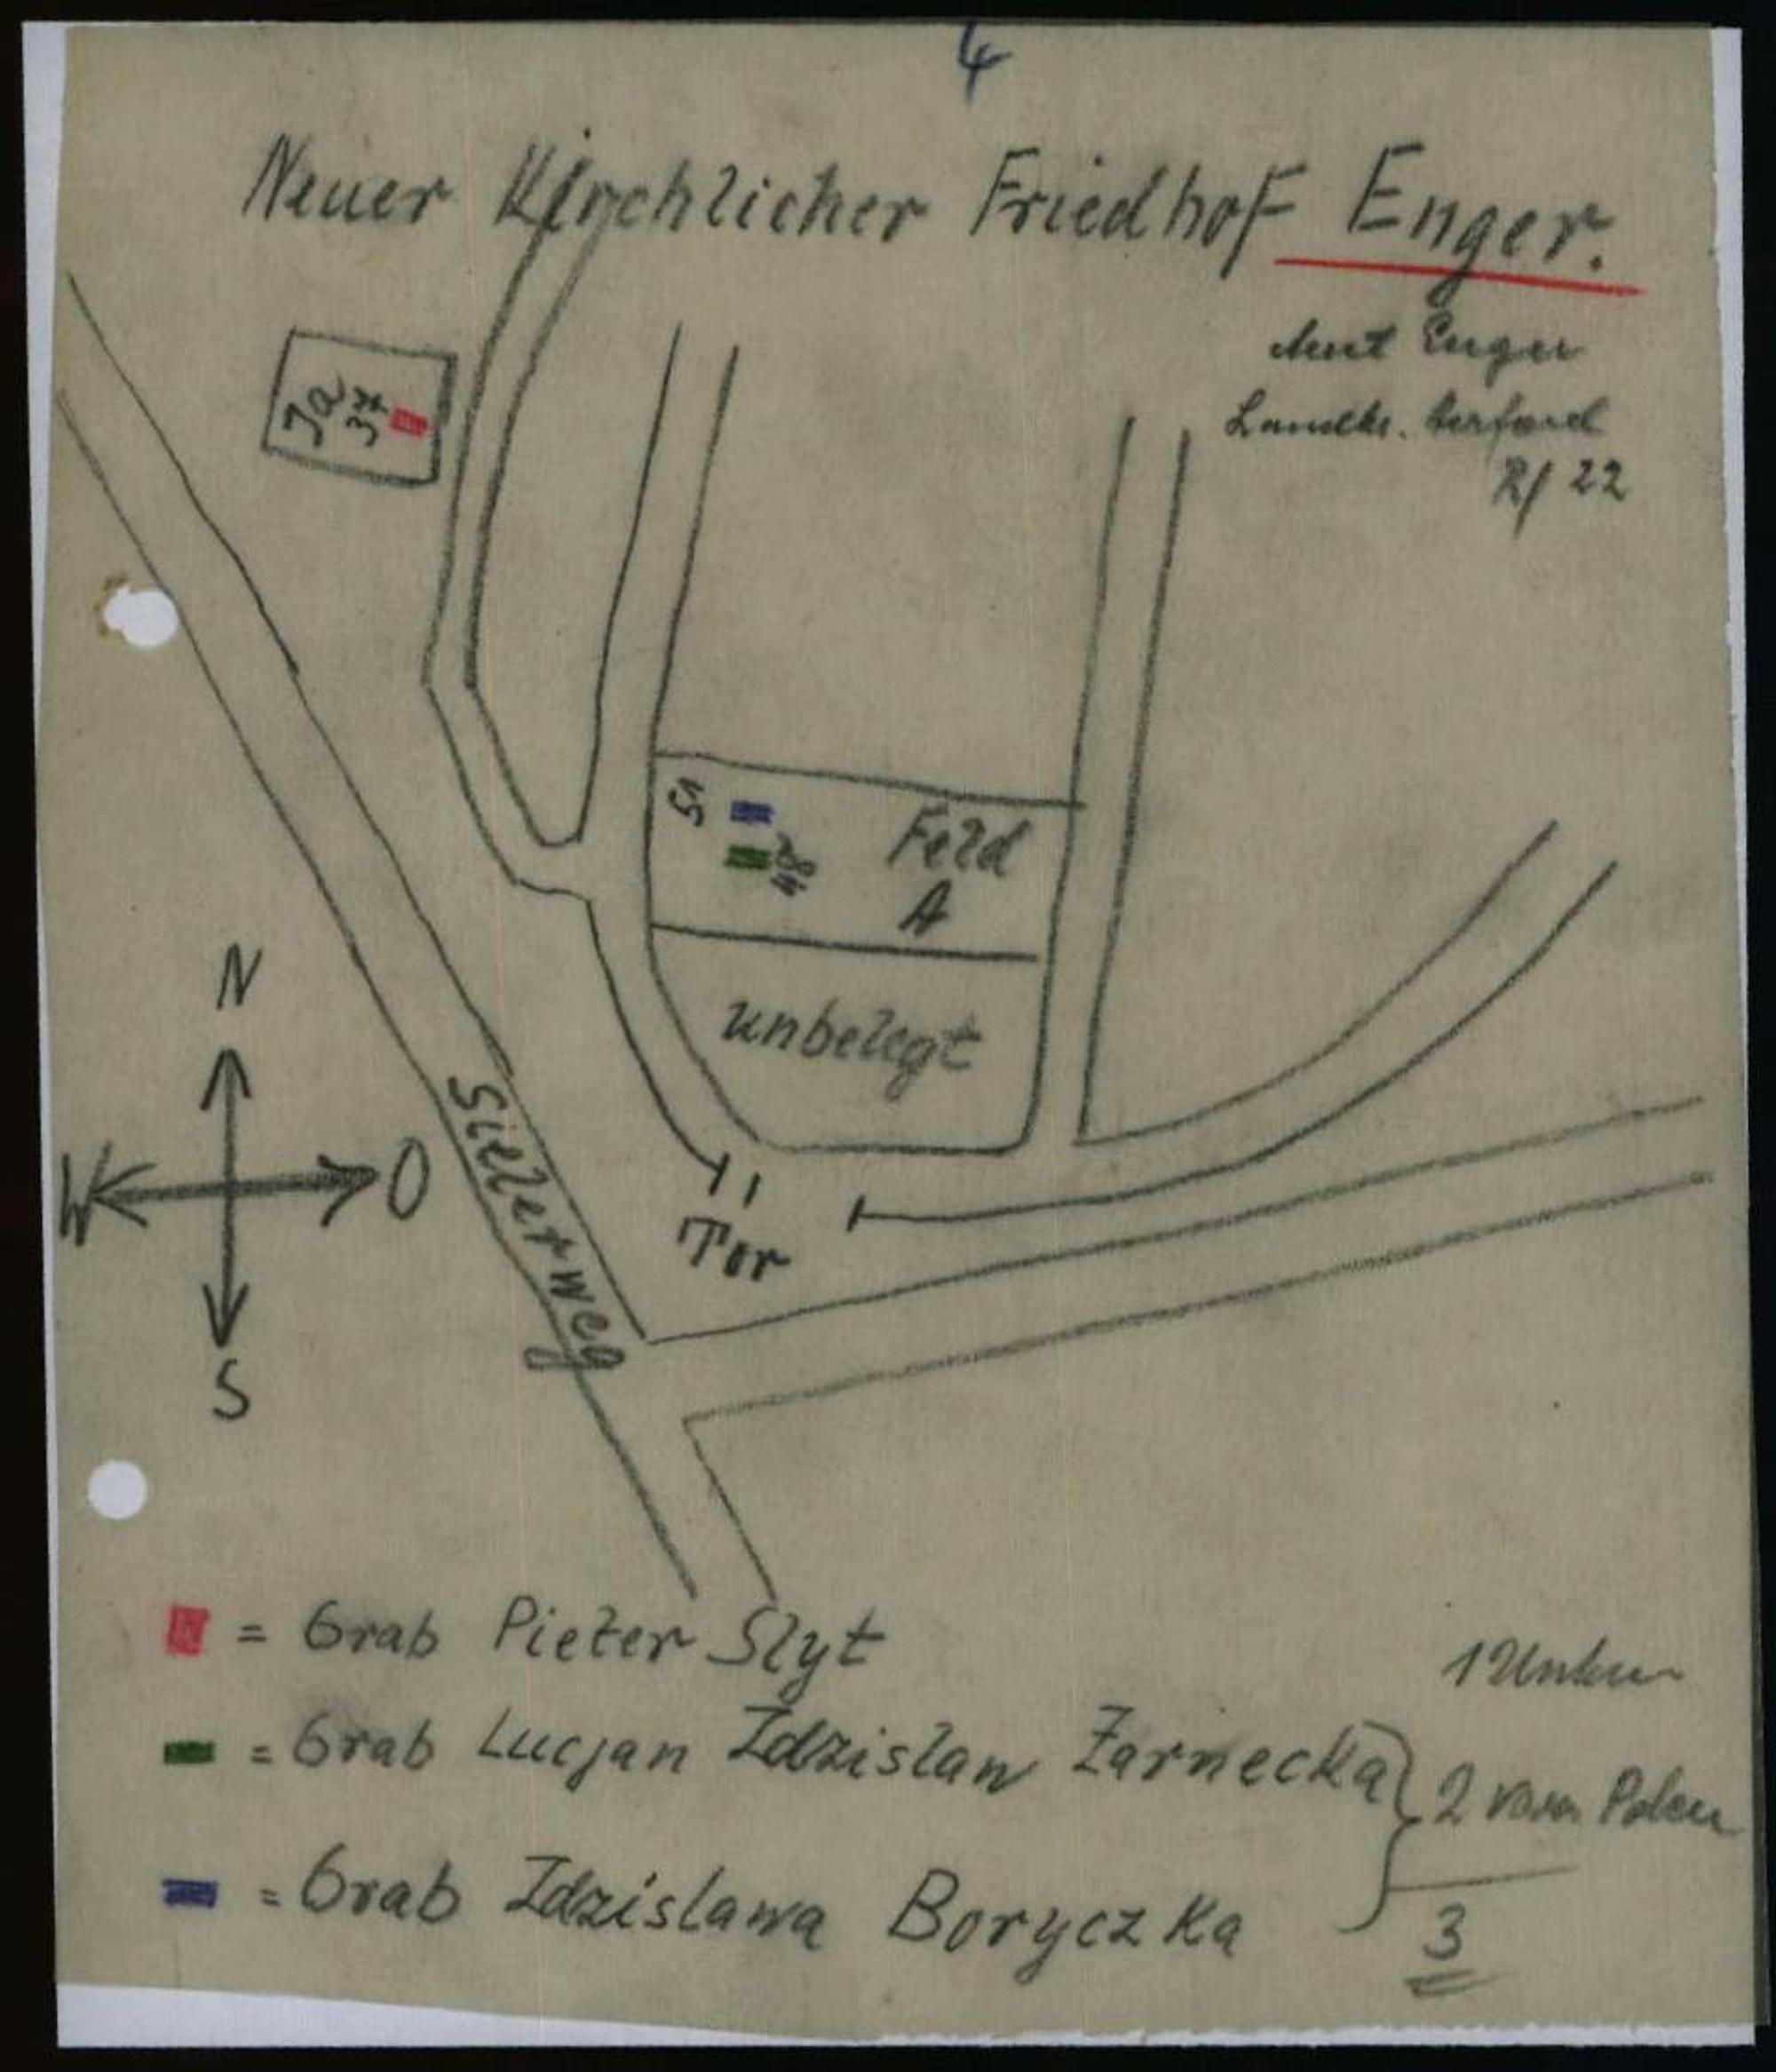 4
Neuer Kirchlicher Friedhof Enger.
Amt Enger
Landkr. Herford
R/22
Ja
37
51
Feld
48
A
unbelegt
N
W O
S
Sielerweg
Tor
= Grab Pieter Slyt
1 Unbek
= Grab Lucjan Zdzislaw Zarnecka
2 Polen
= Grab Zdzislawa Boryczka
3